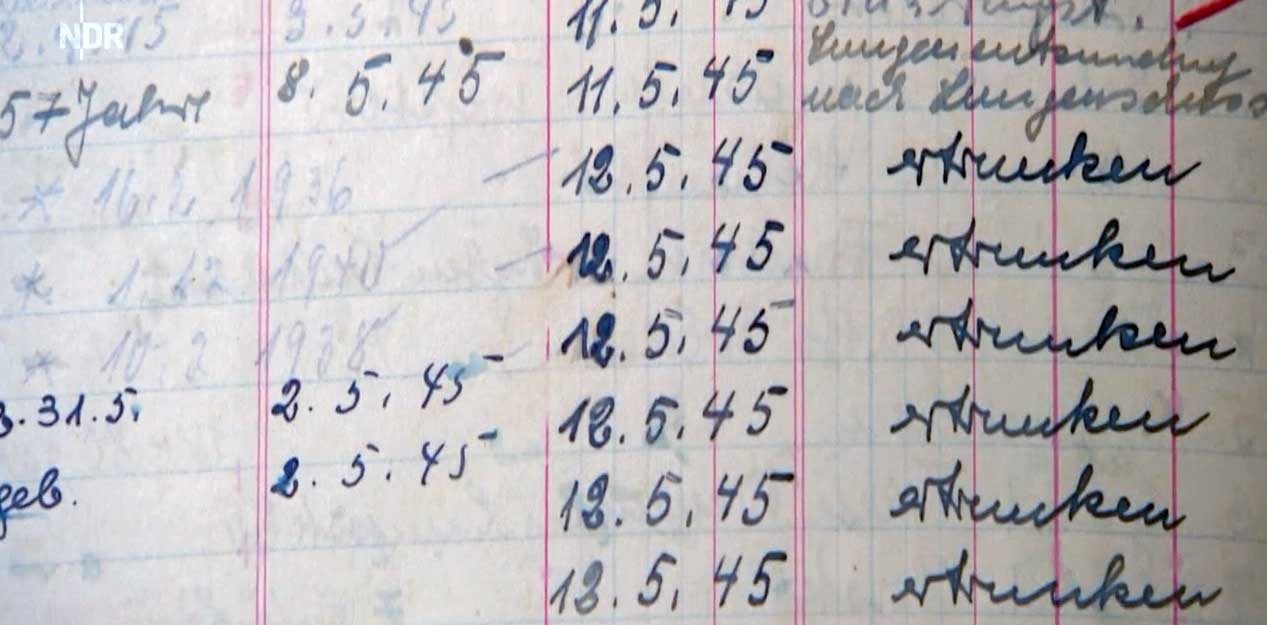 NDR
11.5.45
57 Jahre 8.5.45 11.5.45 Lungenentzündung
nach Lungenschuss
* 16.2.1936 12.5.45 ertrunken
* 1.12 1940 12.5.45 ertrunken
* 10.2 1938 12.5.45 ertrunken
31.5. 2.5.45 12.5.45 ertrunken
geb. 2.5.45 12.5.45 ertrunken
12.5.45 ertrunken